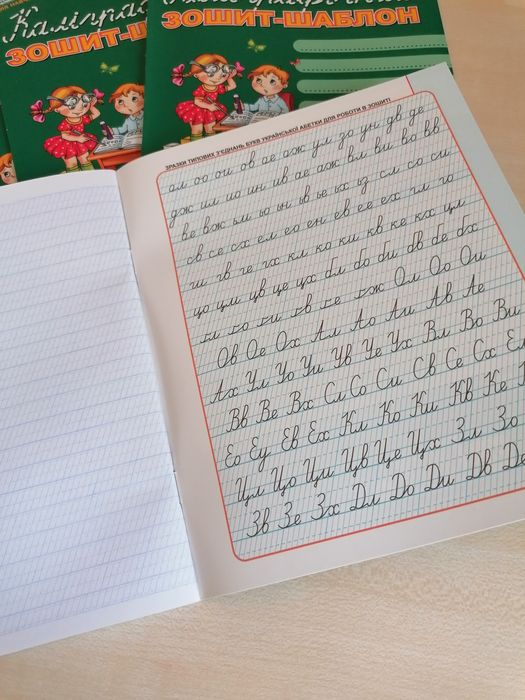 Каліграф
ЗОШИТ-Ш
ЗОШИТ-ШАБЛОН
ЗРАЗКИ ТИПОВИХ З'ЄДНАНЬ БУКВ УКРАЇНСЬКОЇ АБЕТКИ ДЛЯ РОБОТИ В ЗОШИТІ
ол оо ои ов ае аж ул зо ун дв де
дж ил ио ин ив ае аж вл ви во вв
ве вж ьм ьо ьн ьв ье ьх ьз сл со си
св се сх ел ео ен ев ее ех гл го
ги гв ге гх кл ко ки кв ке кх цл
цо цм цв це цх бл бо би бв бе бх
гл го ги гв ге гж Ол Оо Ои
Ов Ое Ох Ал Ао Аи Ав Ае
Ах Ул Уо Уи Ув Уе Ух Вл Во Ви
Вв Ве Вх Сл Со Си Св Се Сх Ел
Ео Еу Ев Ех Кл Ко Ки Кв Ке
Цл Цо Ци Цв Це Цх Зл Зо
Зв Зе Зх Дл До Ди Дв Де